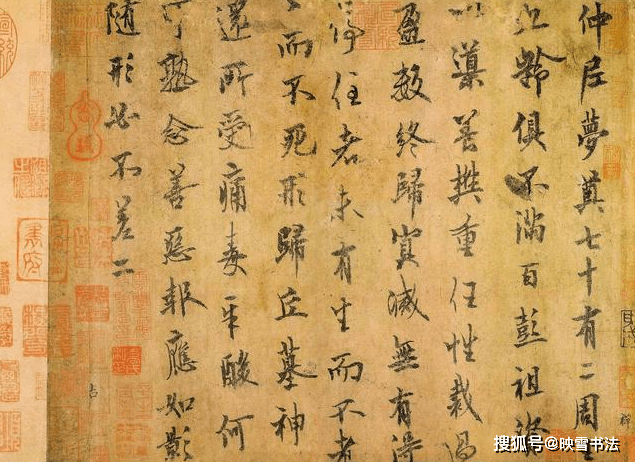 仲尼夢奠七十有二周
九齡俱不滿百彭祖資
導養樊重任性裁過
盈數終歸冥滅無有得
停住者未有生而不老
而不死形歸丘墓神
還所受痛毒辛酸何
可熟念善惡報應如影
隨形必不差二
搜狐号@映雪书法